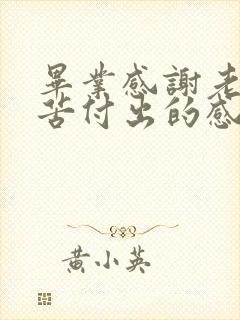 畢業感謝老
苦付出的感
黃小英